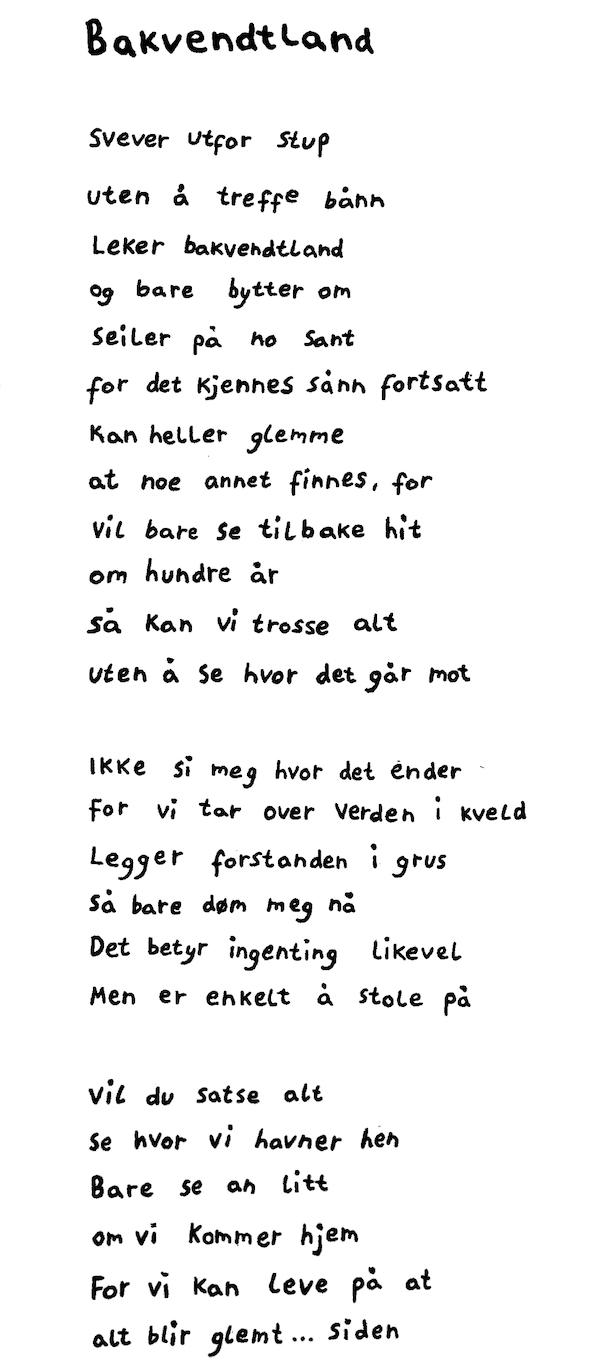 Bakvendtland
Svever utfor stup
uten å treffe bånn
Leker bakvendtland
og bare bytter om
Seiler på no sant
for det kjennes sånn fortsatt
Kan heller glemme
at noe annet finnes, for
Vil bare se tilbake hit
om hundre år
Så kan vi trosse alt
uten å se hvor det går mot
Ikke si meg hvor det ender
For vi tar over verden i kveld
Legger forstanden i grus
Så bare døm meg nå
Det betyr ingenting likevel
Men er enkelt å stole på
Vil du satse alt
Se hvor vi havner hen
Bare se an litt
om vi kommer hjem
For vi kan leve på at
alt blir glemt... siden